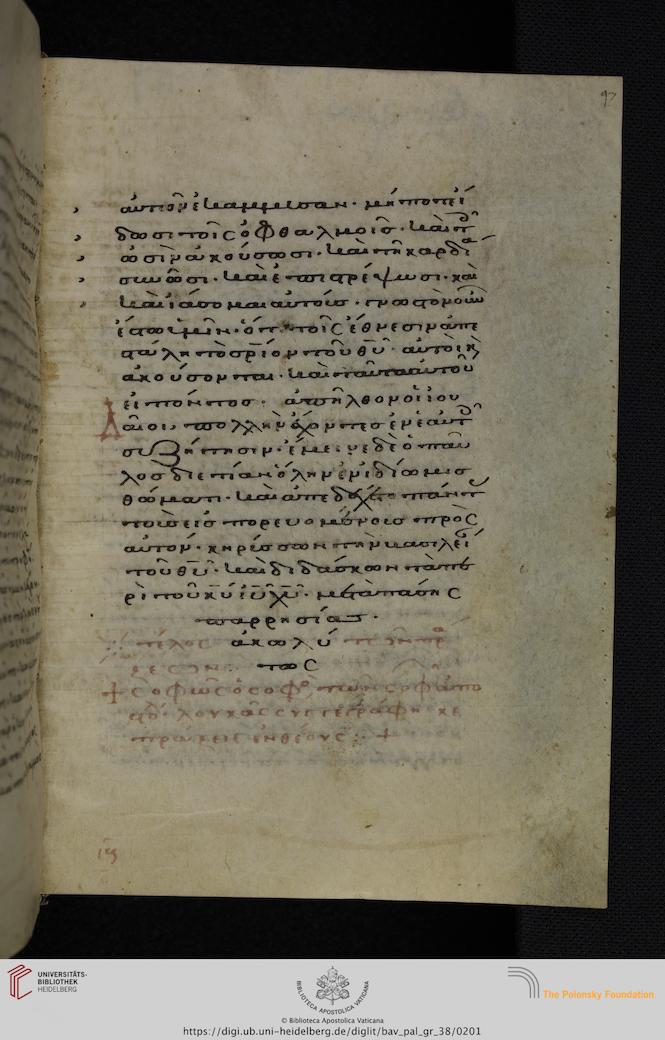 97
αὐτῶν ἐκάμμυσαν· μή ποτε ἴ
δωσι τοῖς ὀφθαλμοῖς· καὶ τοῖς
ὠσὶν ἀκούσωσι· καὶ τῇ καρδίᾳ
συνῶσι· καὶ ἐπιστρέψωσι· καὶ
ἰάσομαι αὐτούς· γνωστὸν οὖν
ἔστω ὑμῖν· ὅτι τοῖς ἔθνεσιν ἀπε
στάλη τὸ σριον τοῦ θυ· αὐτοὶ καὶ
ἀκούσονται· καὶ ταῦτα αὐτοῦ
εἰπόντος· ἀπῆλθον οἱ ἰου
δαῖοι· πολλὴν ἔχοντες ἐν ἑαυτοῖς
συζήτησιν· ἔμεινε δὲ ὁ παῦ
λος διετίαν ὅλην ἐν ἰδίω μισ
θώματι· καὶ ἀπεδέχετο πάντας
τοὺς εἰσπορευομένους πρὸς
αὐτόν· κηρύσσων τὴν βασιλεί
τοῦ θυ· καὶ διδάσκων τὰ πε
ρὶ τοῦ κυ ιυ χυ· μετὰ πάσης
παρρησίας·
ἀκωλύ
τως
τέλος τῶν πρ
+ σοφῶς ὁ σοφὸς
λουκᾶς
πράξεις ἐνθέους +
UNIVERSITÄTS-
BIBLIOTHEK
HEIDELBERG
BIBLIOTECA APOSTOLICA VATICANA
The Polonsky Foundation
© Biblioteca Apostolica Vaticana
https://digi.ub.uni-heidelberg.de/diglit/bav_pal_gr_38/0201